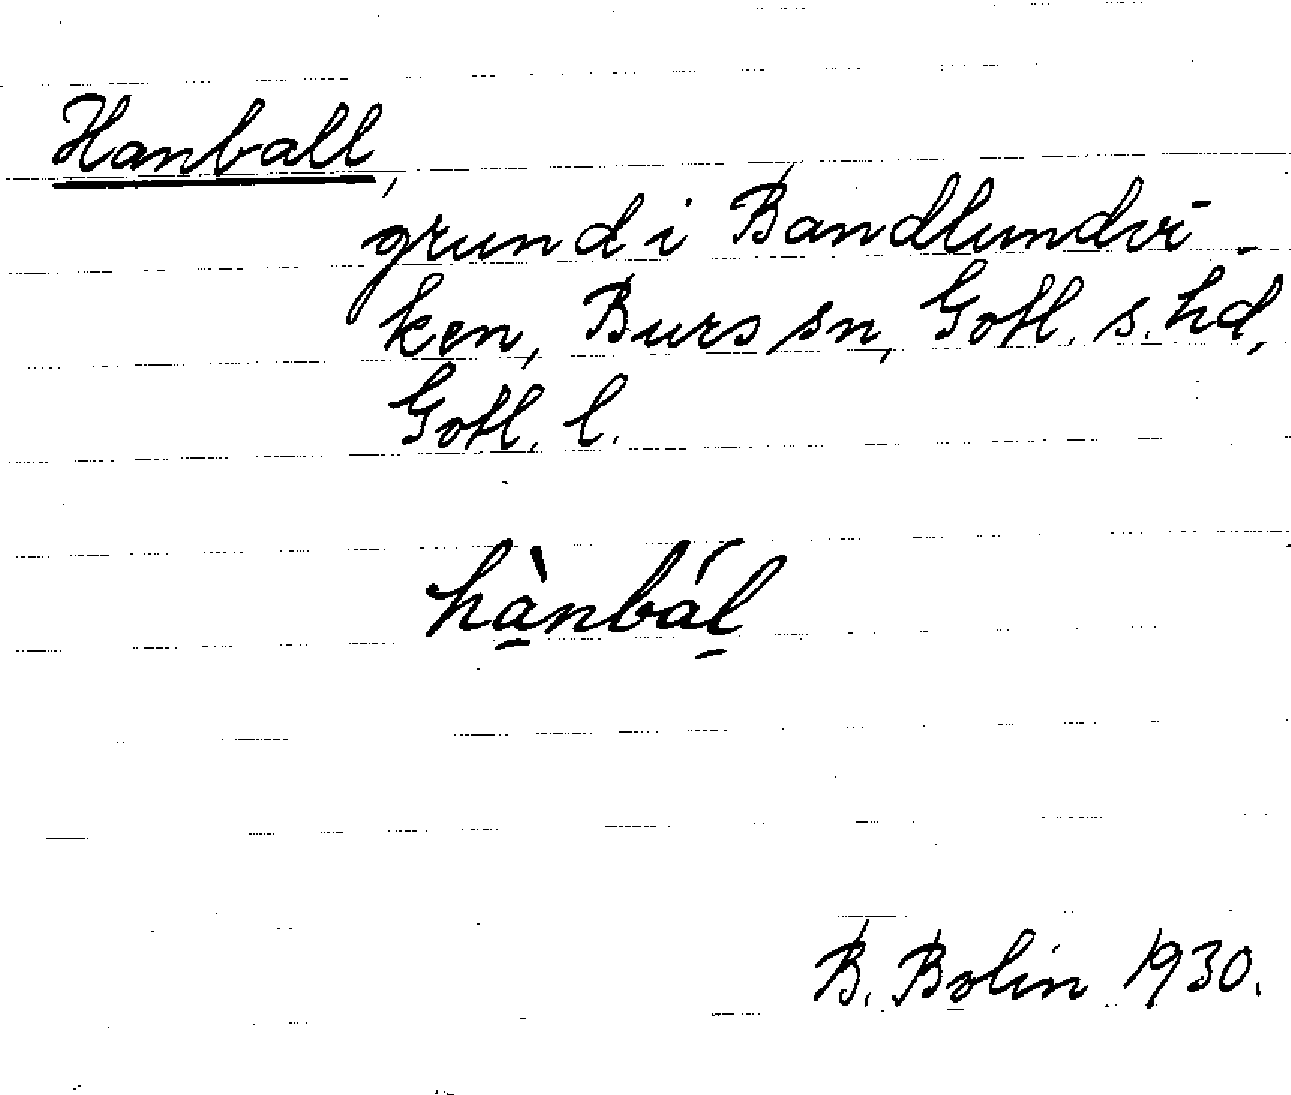 Hanball,
grund i Bandlundvi-
ken, Burs sn, Gotl. s. hd,
Gotl. l.
hà̱nbál̠
B. Bolin 1930.